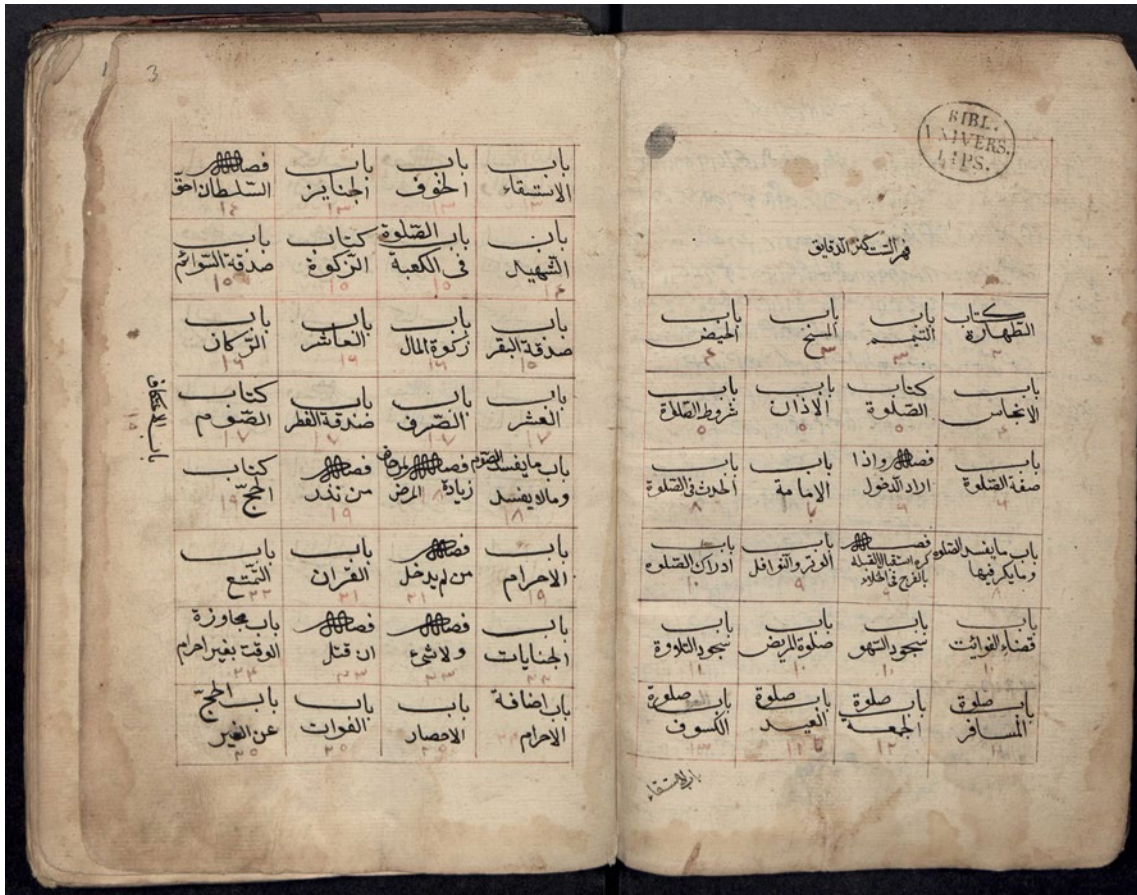 BIBL.
UNIVERS.
LIPS.
فهرست كنز الدقايق
كتاب
الطهارة
٢
باب
التيمم
٣
باب
المسح
٣
باب
الحيض
٤
باب
الانجاس
٤
كتاب
الصلوة
٥
باب
الاذان
٥
باب
شروط الصلوة
٥
باب
صفة الصلوة
٦
فصل واذا
اراد الدخول
٦
باب
الامامة
باب
الحدث فى الصلوة
٨
باب ما يفسد الصلوة
وما يكره فيها
٨
فصل
كره استقبال القبلة
بالفرج فى الخلاء
باب
الوتر والنوافل
٩
باب
ادراك الصلوة
١٠
باب
قضاء الفوائت
١٠
باب
سجود السهو
١٠
باب
صلوة المريض
١٠
باب
سجود التلاوة
باب صلوة
المسافر
١١
باب صلوة
الجمعة
١٢
باب صلوة
العيد
١٢
باب صلوة
الكسوف
١٣
باب الاستسقاء
3
باب
الاستسقاء
١٣
باب
الخوف
١٣
باب
الجنايز
١٣
فصل
السلطان احق
١٤
باب
الشهيد
١٤
باب الصلوة
فى الكعبة
١٥
كتاب
الزكوة
١٥
باب
صدقة السوائم
١٥
باب
صدقة البقر
١٥
باب
زكوة المال
١٦
باب
العاشر
١٦
باب
الركاز
١٦
باب
العشر
١٧
باب
المصرف
١٧
باب
صدقة الفطر
١٧
كتاب
الصوم
١٧
باب ما يفسد الصوم
وما لا يفسد
١٨
فصل لمن خاف
زيادة المرض
١٨
فصل
من نذر
١٩
كتاب
الحج
١٩
باب
الاحرام
١٩
فصل
من لم يدخل
٢١
باب
القران
٢١
باب
التمتع
٢٢
باب
الجنايات
فصل
ولا شئ
٢٣
فصل
ان قتل
٢٣
باب مجاوزة
الوقت بغير احرام
٢٤
باب اضافة
الاحرام
باب
الاحصار
٢٥
باب
الفوات
٢٥
باب الحج
عن الغير
٢٥
باب الاعتكاف